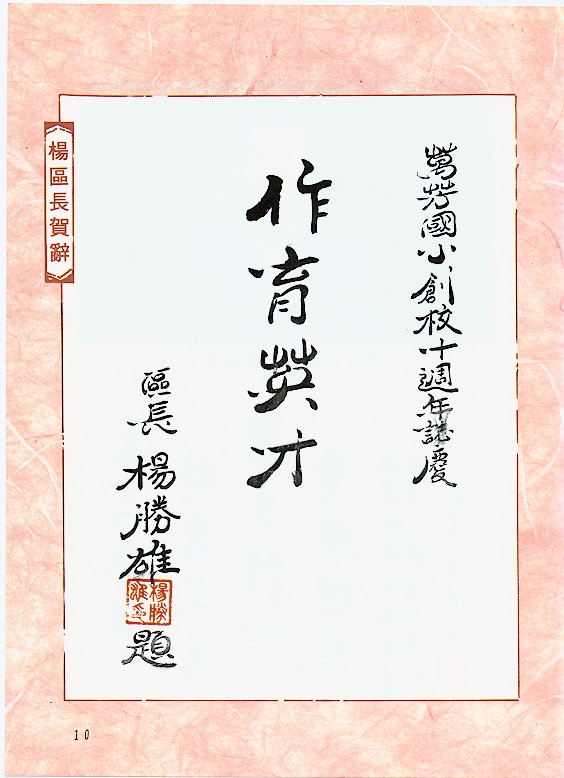 萬芳國小創校十週年誌慶
作育英才
區長 楊勝雄 題
楊勝雄印
楊區長賀辭
10